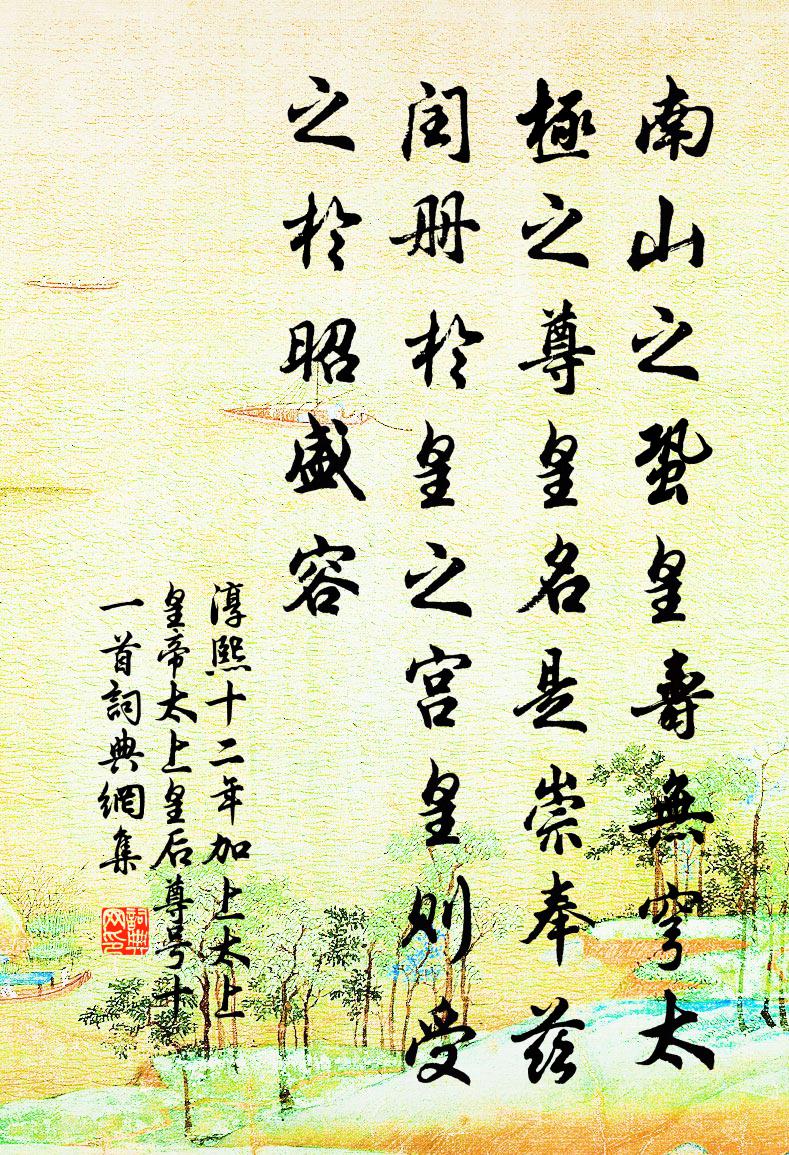 南山之蛩皇壽無穹太
極之尊皇名是崇奉茲
闰册於皇之宫皇则受
之於昭盛容
淳熙十二年加上太上
皇帝太上皇后尊号十
一首詞典網集
詞典
网印